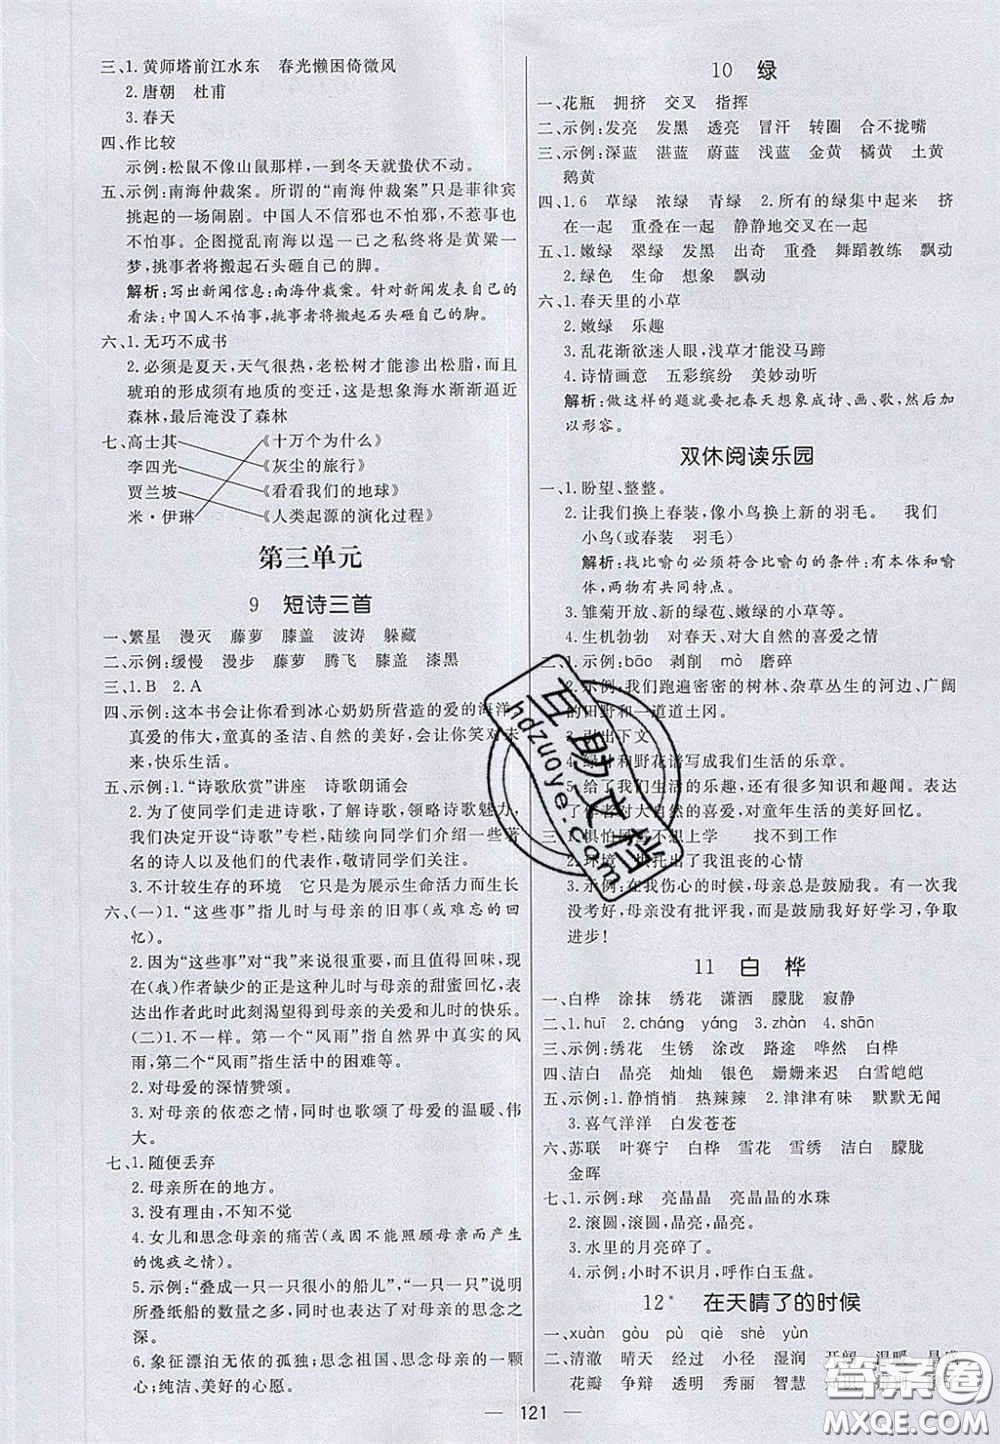 三、1.黄师塔前江水东　春光懒困倚微风
2.唐朝　杜甫
3.春天
四、作比较
示例:松鼠不像山鼠那样,一到冬天就蛰伏不动。
五、示例:南海仲裁案。所谓的“南海仲裁案”只是菲律宾
挑起的一场闹剧。中国人不信邪也不怕邪,不惹事也
不怕事。企图搅乱南海以达一己之私终将是黄粱一
梦,挑事者将搬起石头砸自己的脚。
解析:写出新闻信息:南海仲裁案。针对新闻发表自己的
看法:中国人不怕事,挑事者终将搬起石头砸自己的脚。
六、1.无巧不成书
2.必须是夏天,天气很热,老松树才能渗出松脂,而
琥珀的形成须有地质的变迁,这是想象海水渐渐逼近
森林,最后淹没了森林
七、高士其　《十万个为什么》
李四光　《灰尘的旅行》
贾兰坡　《看看我们的地球》
米·伊琳　《人类起源的演化过程》
第三单元
9　短诗三首
一、繁星　漫灭　藤萝　膝盖　波涛　躲藏
二、示例:缓慢　漫步　藤萝　腾飞　膝盖　漆黑
三、1.B　2.A
四、示例:这本书会让你看到冰心奶奶所营造的爱的海洋,
真爱的伟大,童真的圣洁、自然的美好,会让你笑对未
来,快乐生活。
五、示例:1.“诗歌欣赏”讲座　诗歌朗诵会
2.为了使同学们走进诗歌,了解诗歌,领略诗歌魅力,
我们决定开设“诗歌”专栏,陆续向同学们介绍一些著
名的诗人以及他们的代表作,敬请同学们关注。
3.不计较生存的环境　它只是为展示生命活力而生长
六、(一)1.“这些事”指儿时与母亲的旧事(或难忘的回
忆)。
2.因为“这些事”对“我”来说很重要,而且值得回味,现
在(我)作者缺少的正是这种儿时与母亲的甜蜜回忆,表
达出作者此时此刻渴望得到母亲的关爱和儿时的快乐。
(二)1.不一样。第一个“风雨”指自然界中真实的风
雨,第二个“风雨”指生活中的困难等。
2.对母爱的深情赞颂。
3.对母亲的依恋之情,同时也歌颂了母爱的温暖、伟
大。
七、1.随便丢弃
2.母亲所在的地方。
3.没有理由,不知不觉
4.女儿和思念母亲的痛苦(或因不能照顾母亲而产生
的愧疚之情)。
5.示例:“叠成一只一只很小的船儿”说明
所叠纸船的数量之多,同时也表达了对母亲的思念之
深。
6.象征漂泊无依的孤独;思念祖国、思念母亲的一颗
心;纯洁、美好的心愿。
10　绿
一、花瓶　拥挤　交叉　指挥
二、示例:发亮　发黑　透亮　冒汗　转圈　合不拢嘴
三、示例:深蓝　湛蓝　蔚蓝　浅蓝　金黄　橘黄　土黄
鹅黄
四、1.6　草绿　浓绿　青绿　2.所有的绿集中起来　挤
在一起　重叠在一起　静静地交叉在一起
五、1.嫩绿　翠绿　发黑　出奇　重叠　舞蹈教练　飘动
2.绿色　生命　想象　飘动
六、1.春天里的小草
2.嫩绿　乐趣
3.乱花渐欲迷人眼,浅草才能没马蹄
4.诗情画意　五彩缤纷　美妙动听
解析:做这样的题就要把春天想象成诗、画、歌,然后加
以形容。
双休阅读乐园
一、1.盼望、整整。
2.让我们换上春装,像小鸟换上新的羽毛。　我们
小鸟(或春装　羽毛)
解析:找比喻句必须符合比喻句的条件:有本体和喻
体,两种事物有共同特点。
3.雏菊开放、新的绿苞、嫩绿的小草等。
4.生机勃勃　对春天、对大自然的喜爱之情
二、1.示例:bāo　剥削　mò　磨碎
2.示例:我们跑遍密密的树林、杂草丛生的河边、广阔
的田野和一道道土冈。
3.引出下文
4.绿草和野花谱写成了我们生活的乐章。
5.给了我们生活的乐趣,还有很多知识和趣闻。表达
了作者对大自然的喜爱,对童年生活的美好回忆。
三、1.惧怕困难不想上学　找不到工作
2.环境　烘托出了我沮丧的心情
3.示例:在我伤心的时候,母亲总是鼓励我。有一次我
没考好,母亲没有批评我,而是鼓励我好好学习,争取
进步!
11　白　桦
一、白桦　涂抹　绣花　潇洒　朦胧　寂静
二、1.huī　2.cháng　yáng　3.zhàn　4.shān
三、示例:绣花　生锈　涂改　路途　哗然　白桦
四、洁白　晶亮　灿灿　银色　姗姗来迟　白雪皑皑
五、示例:1.静悄悄　热辣辣　2.津津有味　默默无闻
3.喜气洋洋　白发苍苍
六、苏联　叶赛宁　白桦　雪花　雪绣　洁白　朦胧
金晖
七、1.示例:球　亮晶晶　亮晶晶的水珠
2.滚圆,滚圆,晶亮,晶亮。
3.水里的月亮碎了。
4.示例:小时不识月,呼作白玉盘。
12*　在天晴了的时候
一、xuàn　gòu　pù　qiè　shè　yùn
二、清澈　晴天　经过　小径　湿润　开阔　温暖
花瓣　争辩　透明　秀丽　智慧
121
互助文档
hdzuoye.com
答案圈
MXQE.COM